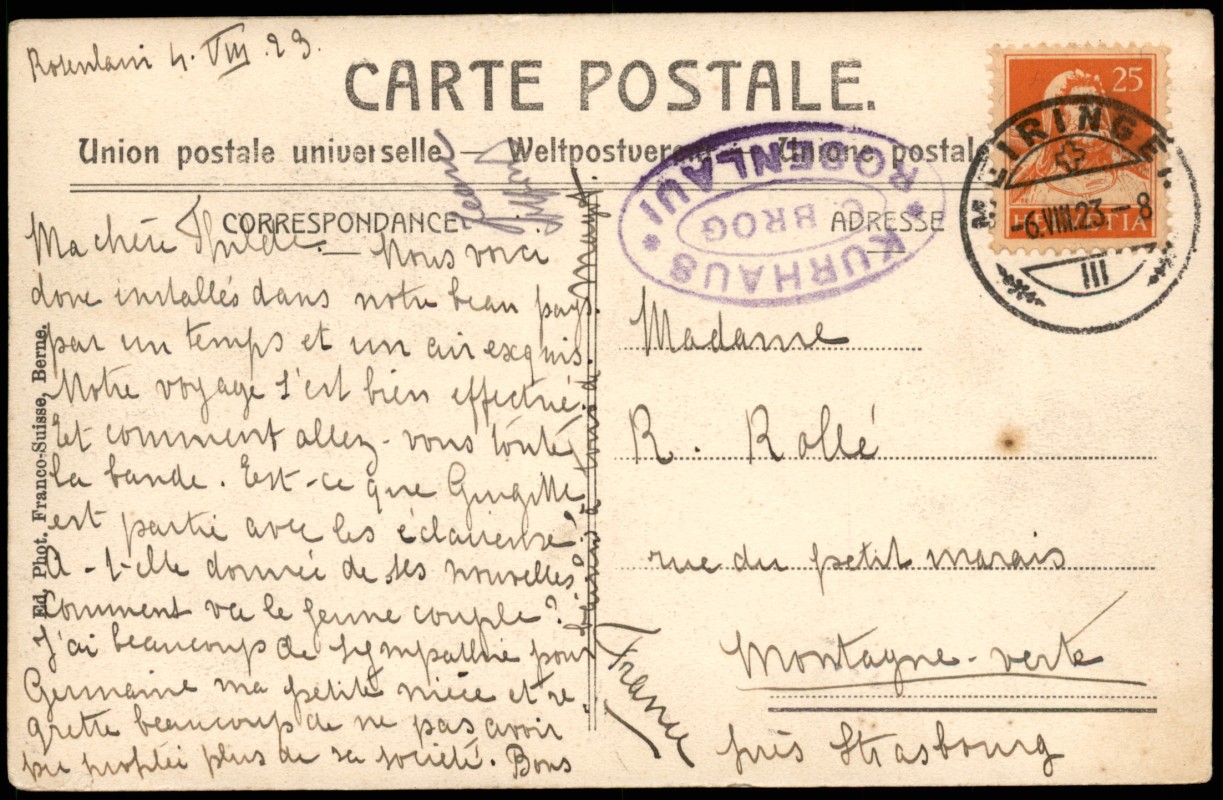 Rosenlaui 4. VIII 23.
CARTE POSTALE.
Union postale universelle — Weltpostverein — Unione postale
CORRESPONDANCE
ADRESSE
KURHAUS * ROSENLAUI *
C. BROG
25
HELVETIA
MEIRINGEN
-6.VIII.23-8
III
Ma chère Thilde. — Nous voici
donc installés dans notre beau pays
par un temps et un air exquis.
Notre voyage s'est bien effectué.
Et comment allez-vous toute
la bande. Est-ce que
est partie avec les éclaireuses
A-t-elle donnée de ses nouvelles
Comment va le jeune couple?
J'ai beaucoup de sympathie pour
Germaine ma petite nièce et re
grette beaucoup de ne pas avoir
pu profiter plus de sa société. Bons
baisers à tous de
Madame
R. Rollé
rue du petit marais
Montagne-verte
près Strasbourg
France
Ed. Phot. Franco-Suisse, Berne.